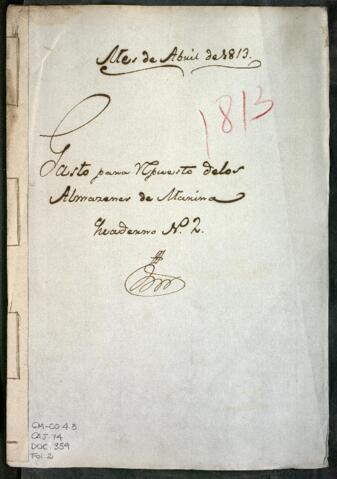 Mes de Abril de 1813.
1813
Gasto para Rpuesto delos
Almazenes de Marina
Quaderno N.º 2.
GM-CO 4.3
CAJ. 74
DOC. 359
Fol. 2